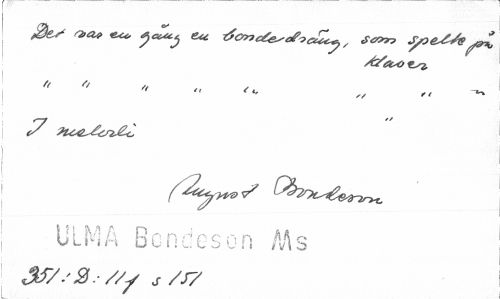 Det var en gång en bondedräng, som spelte på
klaver
" " " " " " " "
"
I melodi
August Bondeson
ULMA Bondeson Ms
351:D:11f s 151